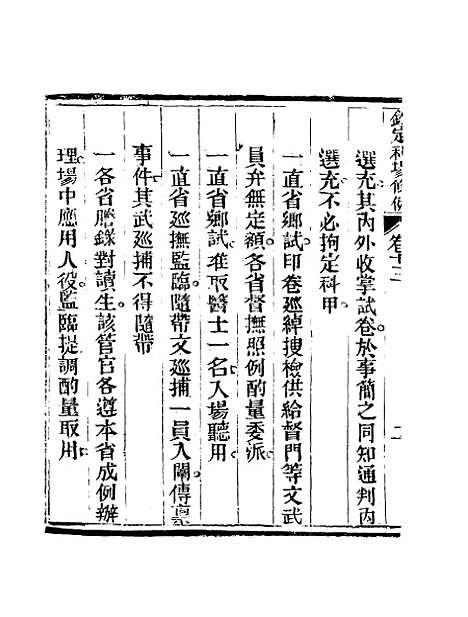 欽定科場條例 卷十三 二
選充其內外收掌試卷於事簡之同知通判內
選充不必拘定科甲
一直省鄉試印卷巡綽搜檢供給督門等文武
員弁無定額各省督撫照例酌量委派
一直省鄉試准取醫士一名入場聽用
一直省巡撫監臨隨帶文巡捕一員入闈傳稟
事件其武巡捕不得隨帶
一各省謄錄對讀生該管官各遵本省成例辦
理場中應用人役監臨提調酌量取用